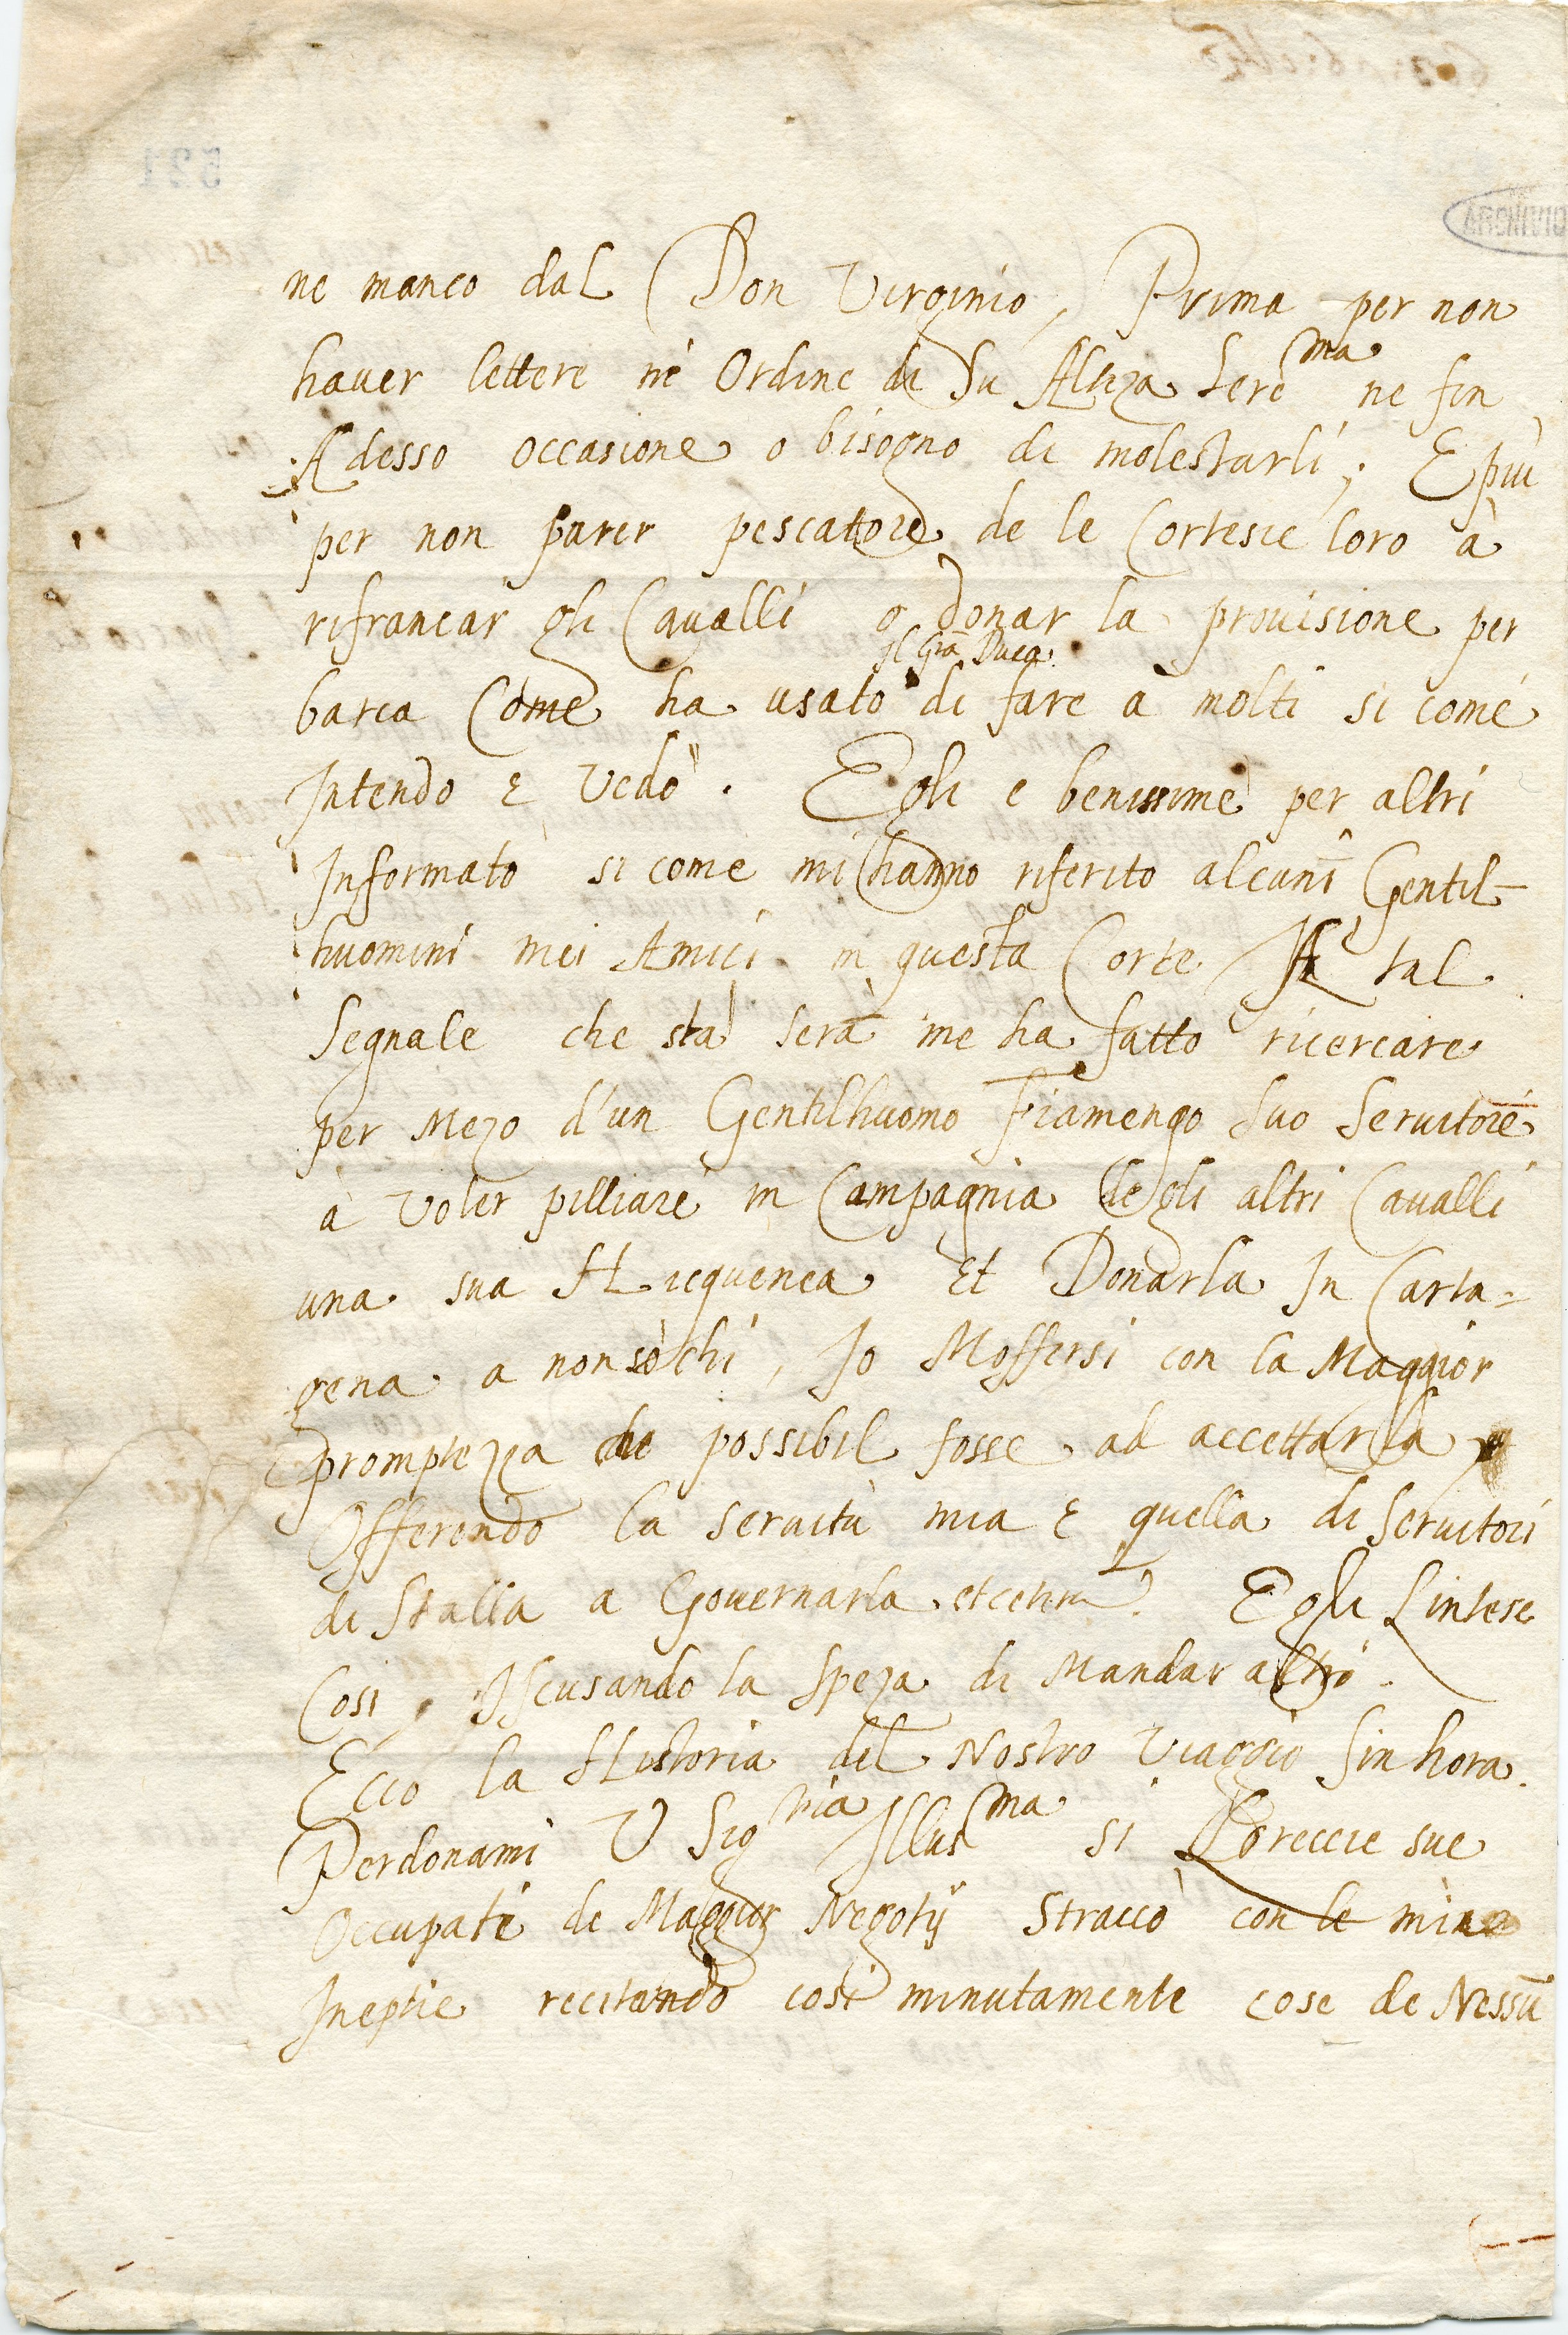 ne manco dal Don Virginio, Prima per non
haver lettere nè Ordine di Su Alteza Sere^ma ne fin
Adesso occasione o bisogno di molestarli; E più
per non parer pescatore de le Cortesie loro à
rifrancar gli Cavalli o donar la provisione per
il Grã Duca
barca Come ha usato di fare a molti si come
Intendo e Vedo. Egli e benissime per altri
Informato si come mi hanno riferito alcuni Gentil-
huomini mei Amici in questa Corte A tal
Segnale che sta sera me ha fatto ricercare
per Mezo d'un Gentilhuomo Fiamengo Suo Servitore
à Voler pilliare in Campagnia de gli altri Cavalli
una sua Hicquenea Et Donarla In Carta=
gena a non sò chi, Io M'offersi con la Maggior
promptezza che possibil fosse ad accettarla
Offerendo la servitù mia e quella di Servitori
di Stalla a Governarla etcetera. Egli L'intese
Cosi, Iscusando la Speza di Mandar altro.
Ecco la Historia del Nostro Viaggio Sin hora.
Perdonami V Sig^ria Illus^ma si L'oreccie sue
Occupate de Maggior Negotij Stracco con le mie
Ineptie recitando cosi minutamente cose de Nessũ
521
ARCHIVIO